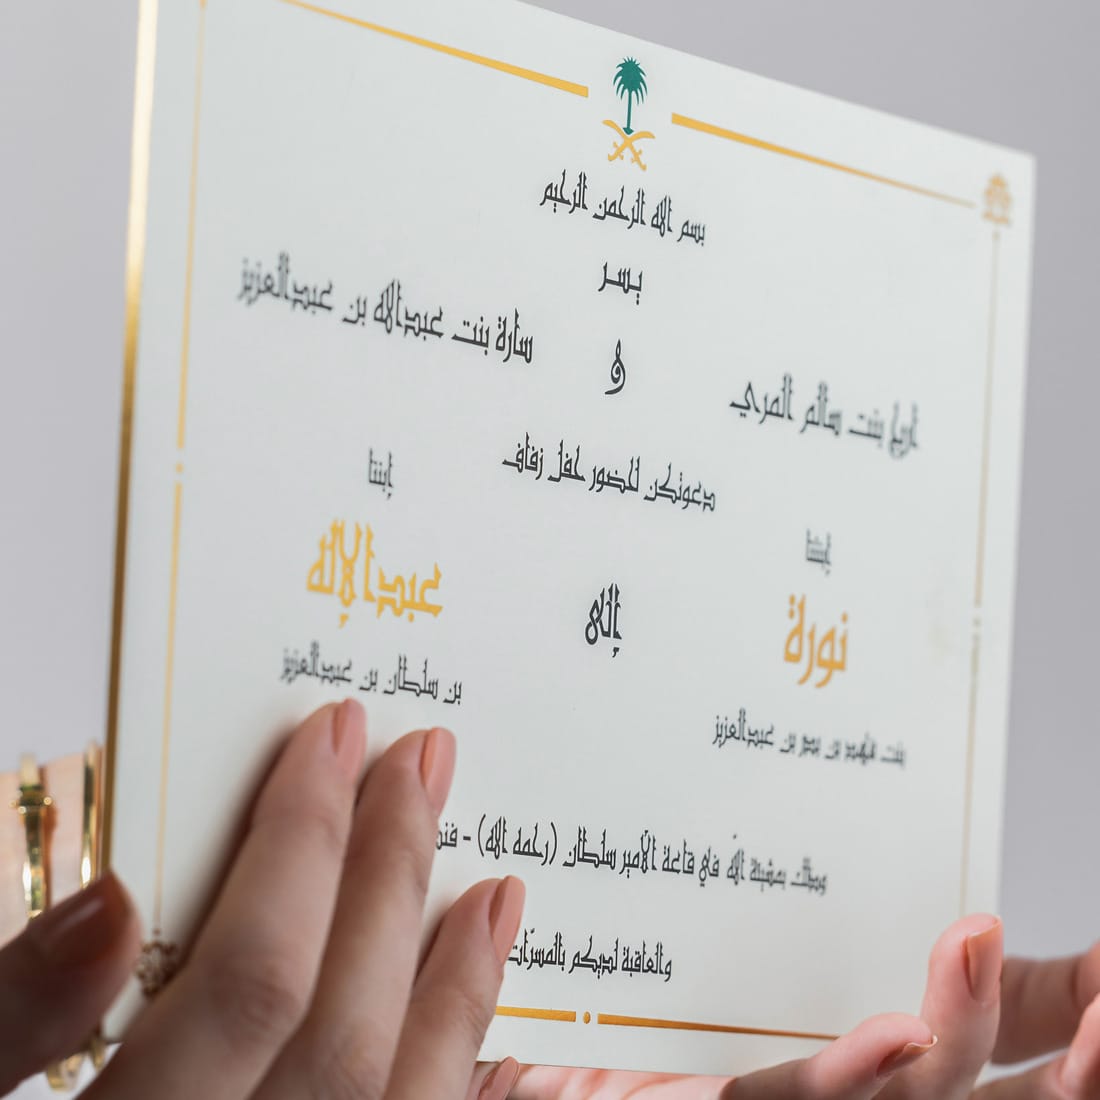 بسم الله الرحمن الرحيم
يسر
أريج بنت سالم المري
و
سارة بنت عبدالله بن عبدالعزيز
دعوتكن لحضور حفل زفاف
إبنتنا
إبننا
نورة
إلى
عبدالإله
بنت فهد بن بدر بن عبدالعزيز
بن سلطان بن عبدالعزيز
وذلك بمشيئة الله في قاعة الأمير سلطان (رحمه الله) -
والعاقبة لديكم بالمسرّات